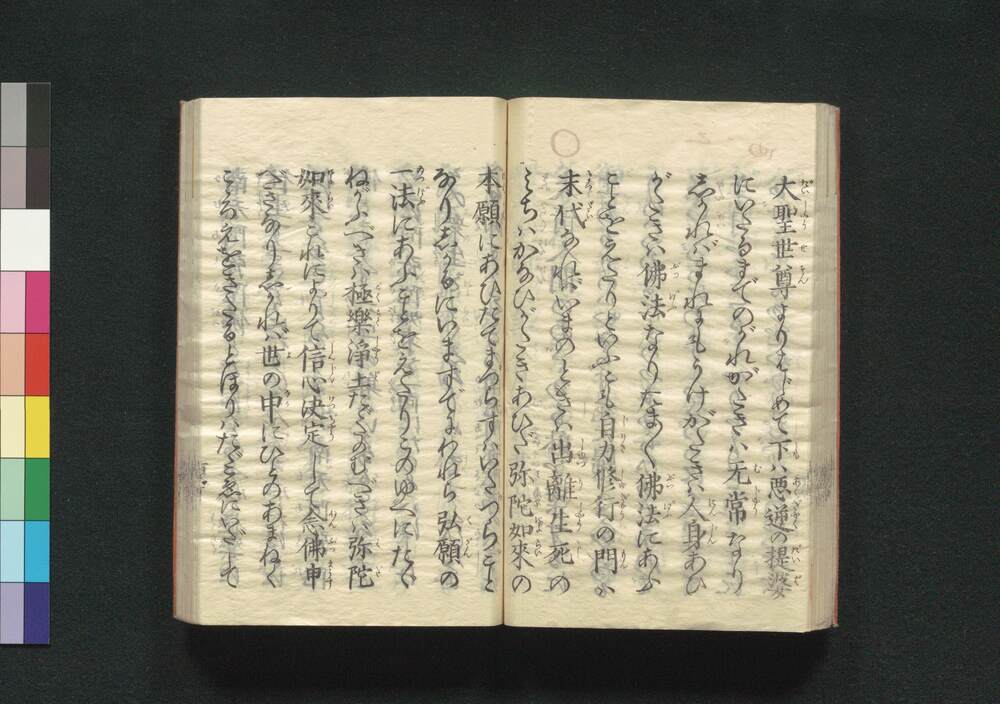 大聖世尊よりはじめて下ハ悪逆の提婆
にいたるまでのがれがたきハ无常なり
しかれバまれにもうけがたきハ人身あひ
がたきハ佛法なりたま〳〵佛法にあふ
ことをえたりといふとも自力修行の門ハ
末代なれバいまのときハ出離生死の
みちハかなひがたきあひだ弥陀如來の
本願にあひたてまつらずハいたづらごと
なりしかるにいますでにわれら弘願の
一法にあふことをえたりこのゆへにたゞ
ねがふべきハ極樂淨土たゞたのむべきハ弥陀
如來これによりて信心決定して念佛申
べきなりしかれバ世の中にひとのあまねく
こゝろえをきたるとほりハたゞこゑにいだして